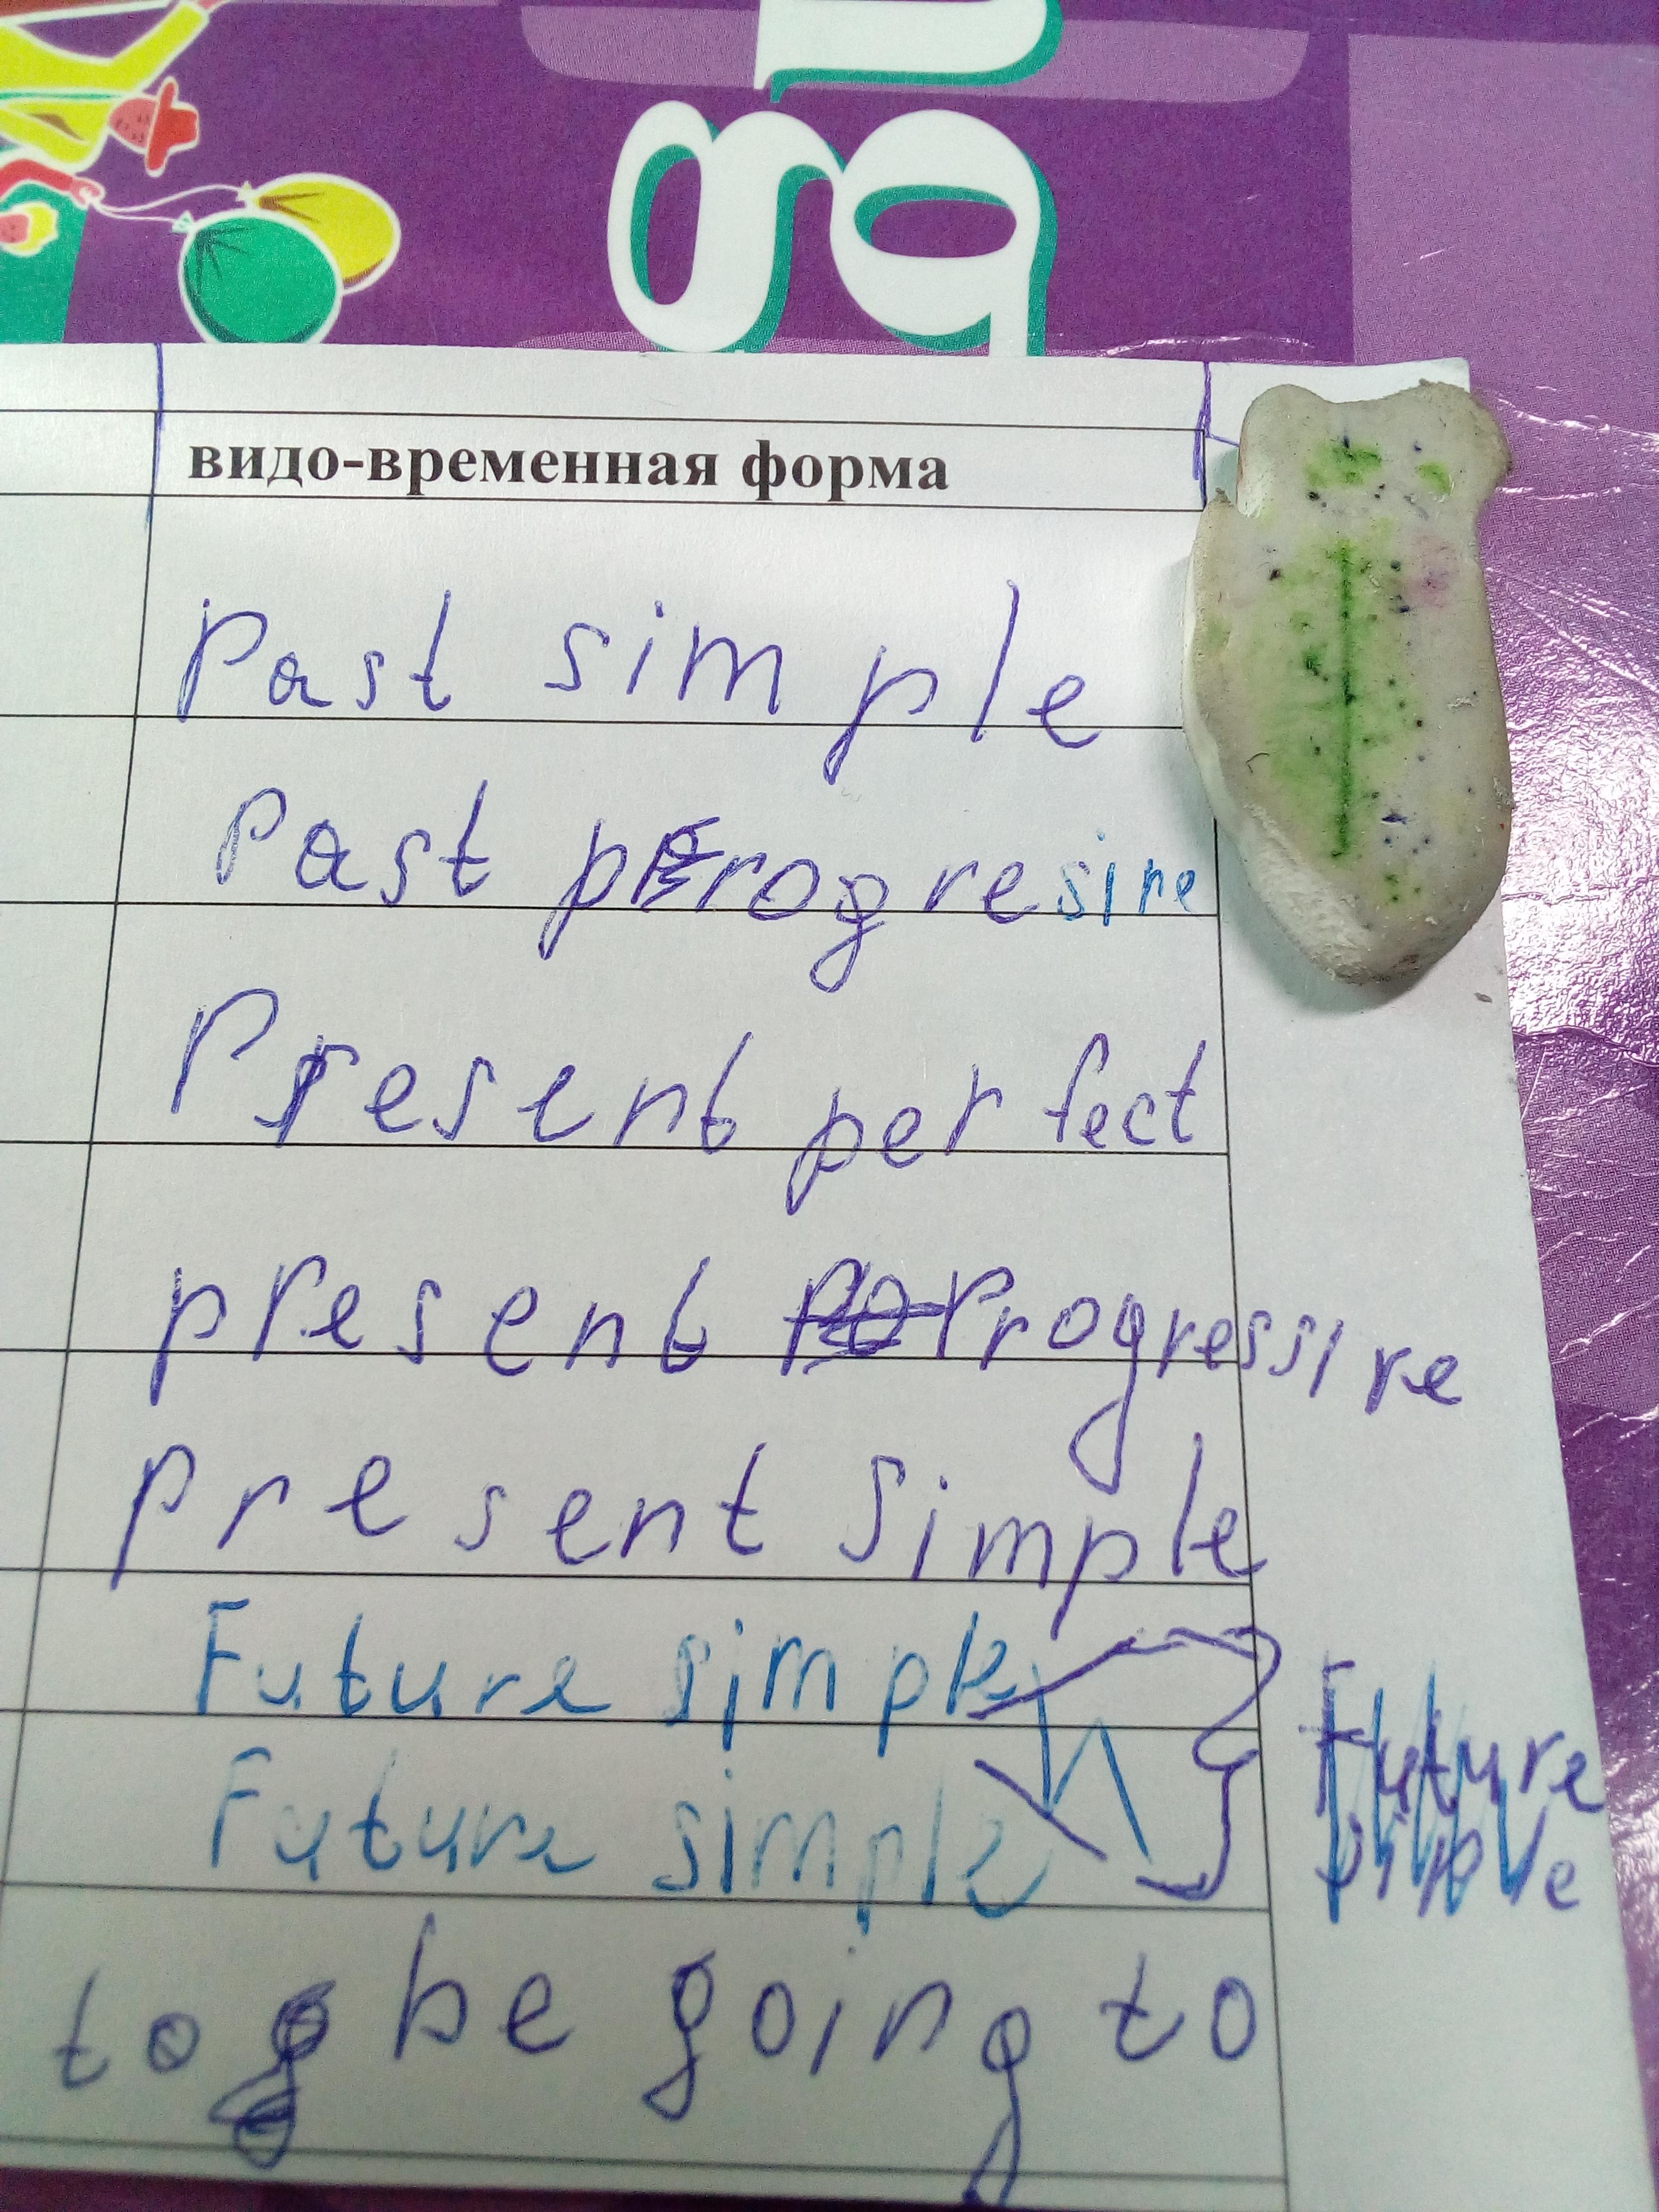 видо-временная форма
Past simple
Past progresire
Present perfect
present Progressire
present simple
Future simple
Future simple
Future simple
to be going to